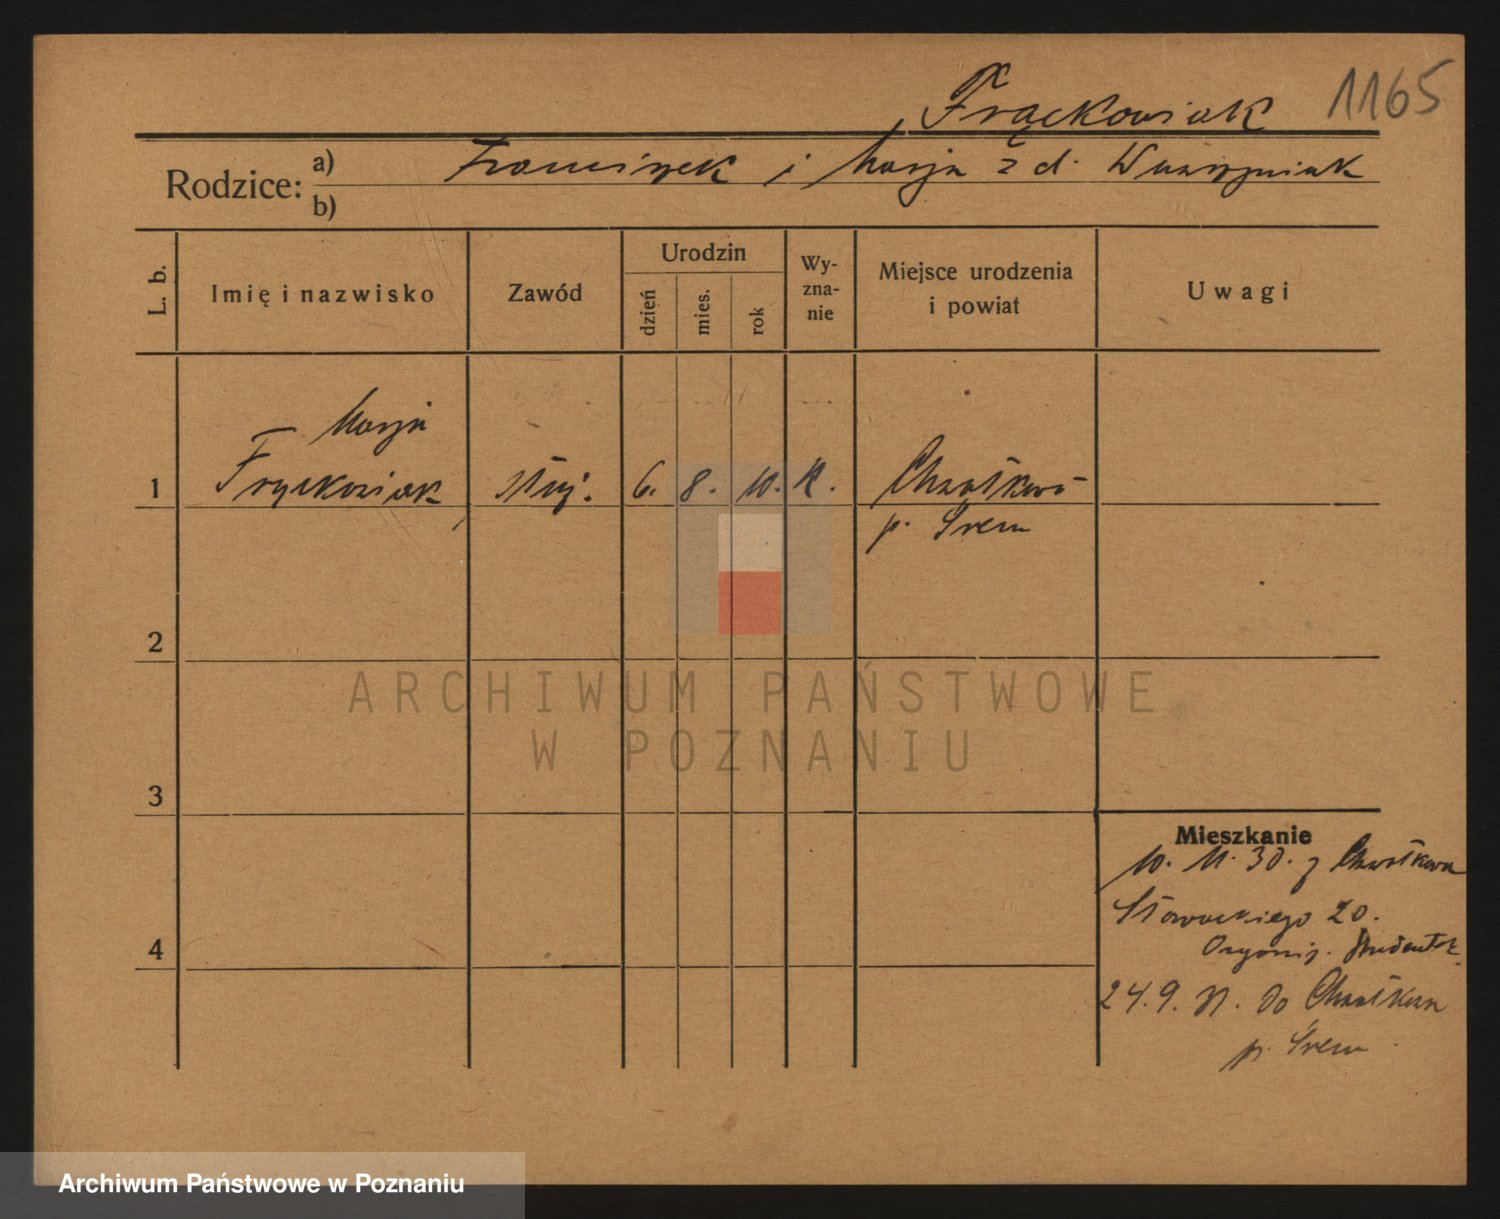 Frąckowiak 1165
Rodzice: a) Franciszek i Marja z d. Wawrzyniak
b)
L. b. Imię i nazwisko Zawód Urodzin dzień mies. rok Wy-zna-nie Miejsce urodzenia i powiat Uwagi
Marja
1 Frąckowiak służ. 6. 8. 10. K. Chwałkowo
p. Śrem
2
3
4
Mieszkanie
10. 11. 30. z Chwałkowa
Słowackiego 20.
24.9. do Chwałkowa
p. Śrem
ARCHIWUM PAŃSTWOWE
W POZNANIU
Archiwum Państwowe w Poznaniu